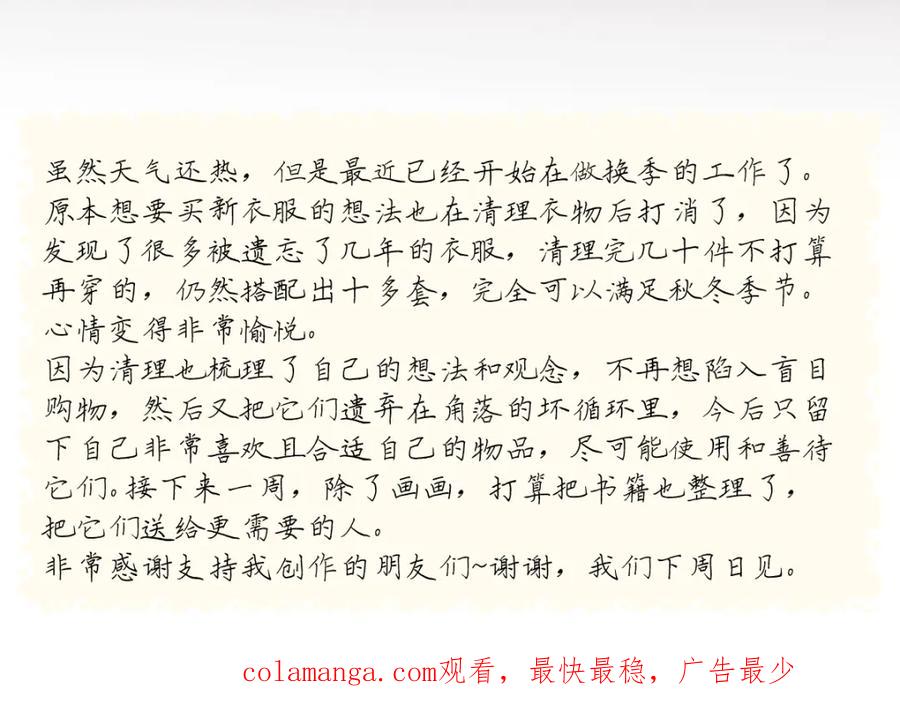 虽然天气还热，但是最近已经开始在做换季的工作了。
原本想要买新衣服的想法也在清理衣物后打消了，因为
发现了很多被遗忘了几年的衣服，清理完几十件不打算
再穿的，仍然搭配出十多套，完全可以满足秋冬季节。
心情变得非常愉悦。
因为清理也梳理了自己的想法和观念，不再想陷入盲目
购物，然后又把它们遗弃在角落的坏循环里，今后只留
下自己非常喜欢且合适自己的物品，尽可能使用和善待
它们。接下来一周，除了画画，打算把书籍也整理了，
把它们送给更需要的人。
非常感谢支持我创作的朋友们~谢谢，我们下周日见。
colamanga.com观看，最快最稳，广告最少